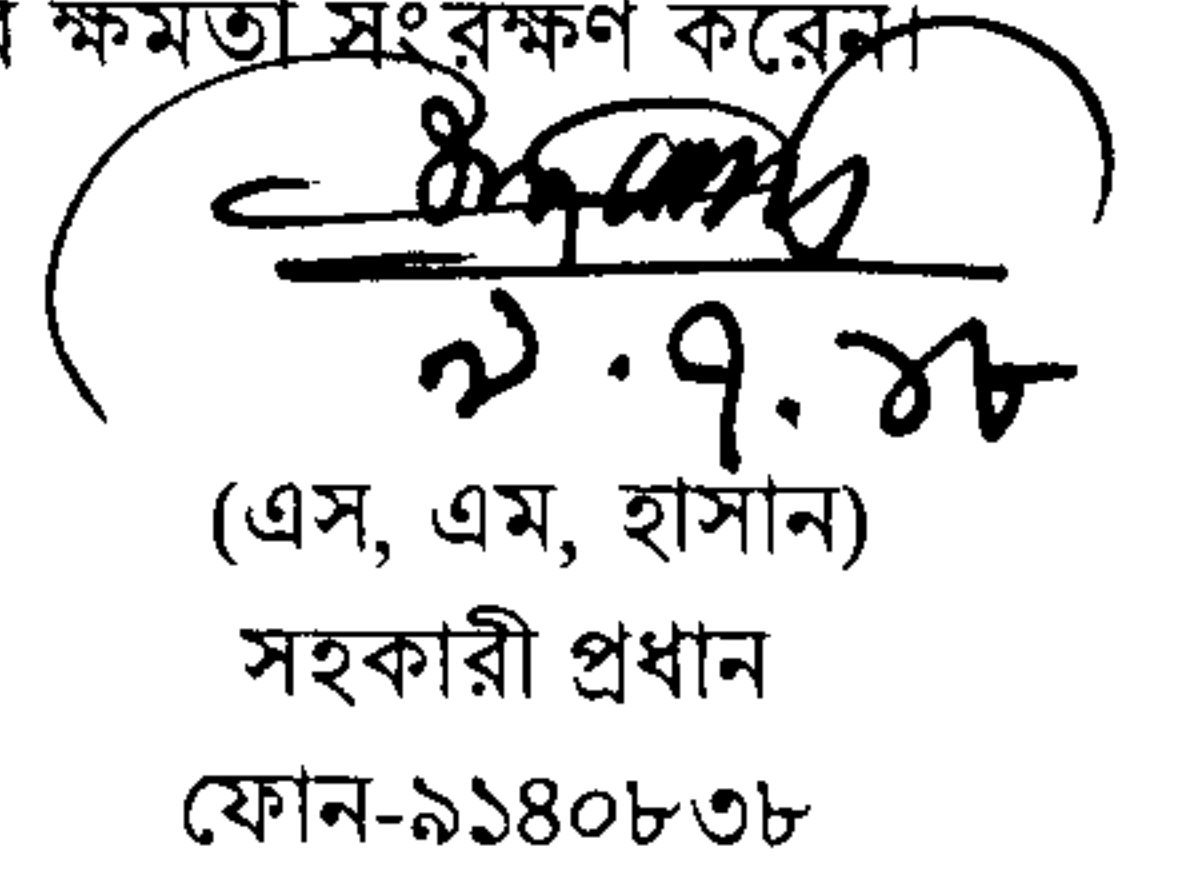 ক্ষমতা সংরক্ষণ করেন।
(এস, এম, হাসান)
সহকারী প্রধান
ফোন-৯১৪০৮৩৮